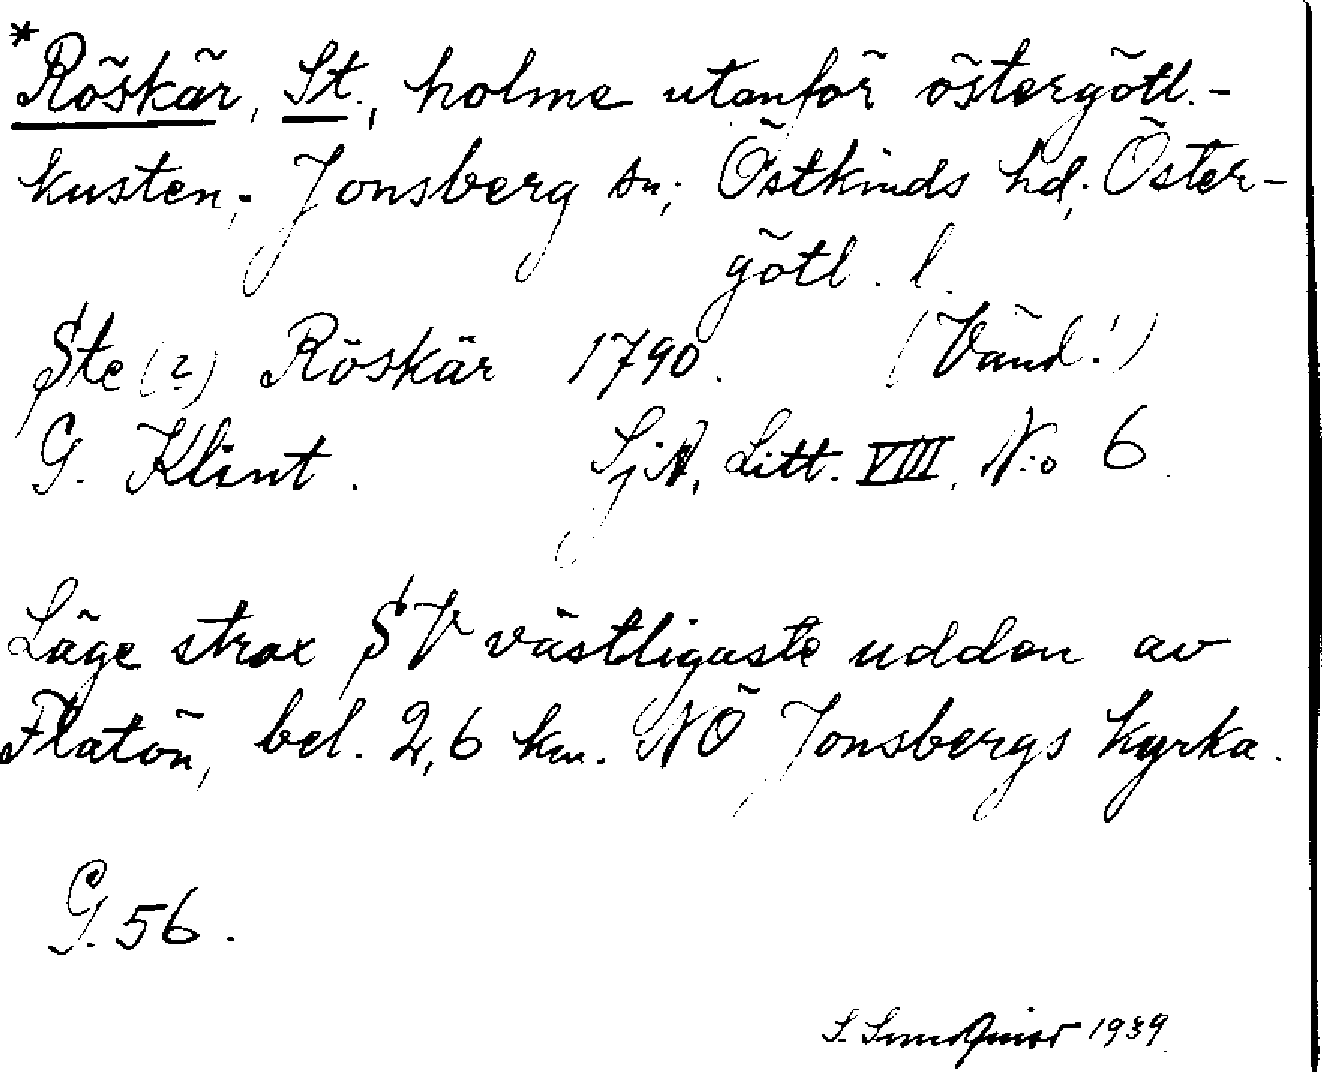 *Röskär, St., holme utanför östergötl.-
kusten; Jonsberg sn; Östkinds hd; Öster-
götl. l.
Ste (?) Röskär 1790. (Vänd!)
G. Klint. SjA, Litt. VIII, N:o 6.
Läge strax SV västligaste udden av
Flatön, bel. 2,6 km. NÖ Jonsbergs kyrka.
G. 56.
S. Sundqvist 1939